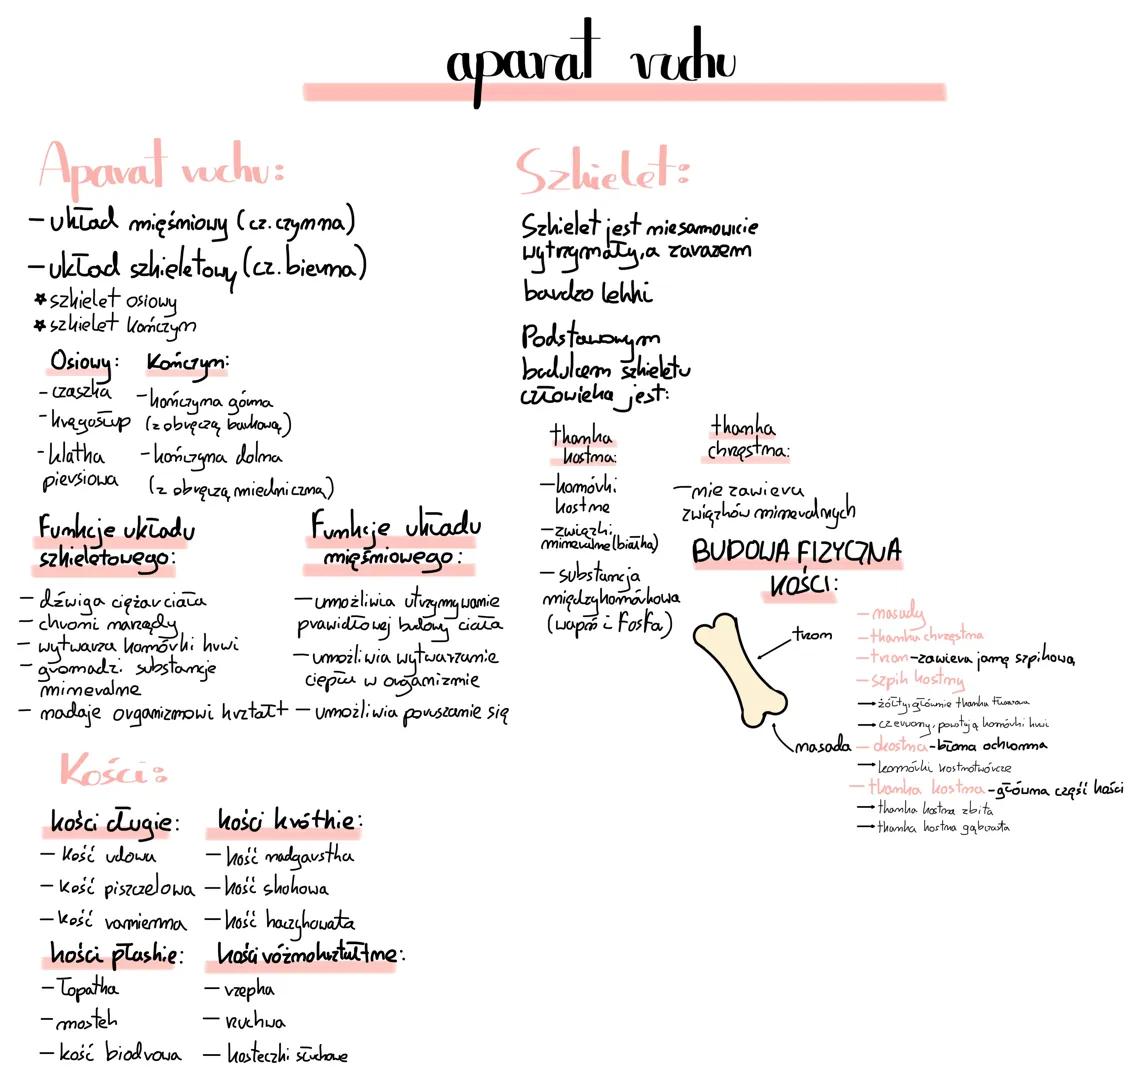 aparat ruchu
Aparat ruchu:
– układ mięśniowy (cz. czynna)
– układ szkieletowy (cz. bierna)
* szkielet osiowy
* szkielet kończyn
Osiowy:
- czaszka
- kręgosłup
- klatka
piersiowa
Kończyn:
- kończyna górna
(z obręczą barkową)
- kończyna dolna
(z obręczą miedniczną)
Funkcje układu
szkieletowego:
– dźwiga ciężar ciała
– chroni narządy
– wytwarza komórki krwi
– gromadzi substancje
mineralne
– nadaje organizmowi kształt
Funkcje układu
mięśniowego:
– umożliwia utrzymywanie
prawidłowej budowy ciała
– umożliwia wytwarzanie
ciepła w organizmie
– umożliwia poruszanie się
Kości:
kości długie:
– kość udowa
– kość piszczelowa
– kość ramienna
kości krótkie:
– kość nadgarstka
– kość skokowa
– kość haczykowata
kości płaskie:
– łopatka
– mostek
– kość biodrowa
kości różnokształtne:
– rzepka
– żuchwa
– kosteczki słuchowe
Szkielet:
Szkielet jest niesamowicie
wytrzymały, a zarazem
bardzo lekki
Podstawowym
budulcem szkieletu
człowieka jest:
tkanka
kostna:
– komórki
kostne
– związki
mineralne (białka)
– substancja
międzykomórkowa
(wapń i fosfa)
tkanka
chrzęstna:
– nie zawiera
związków mineralnych
BUDOWA FIZYCZNA
KOŚCI:
trzon
nasada
– nasady
– tkanka chrzęstna
– trzon – zawiera jamę szpikową
– szpik kostny
→ żółty, głównie tkanka tłuszczowa
→ czerwony, powstają komórki krwi
– okostna – błona ochronna
→ komórki kostnotwórcze
– tkanka kostna – główna część kości
→ tkanka kostna zbita
→ tkanka kostna gąbczasta